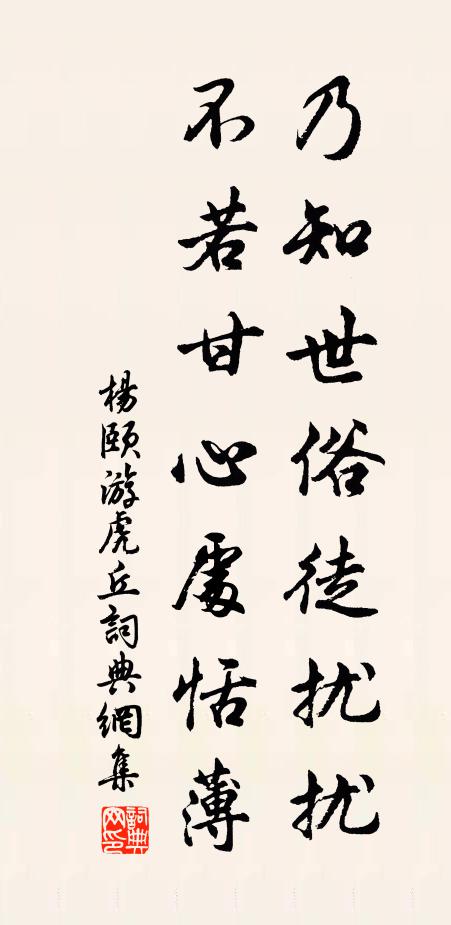 乃知世俗徒扰扰
不若甘心處恬薄
楊颐游虎丘詞典網集
詞典网印